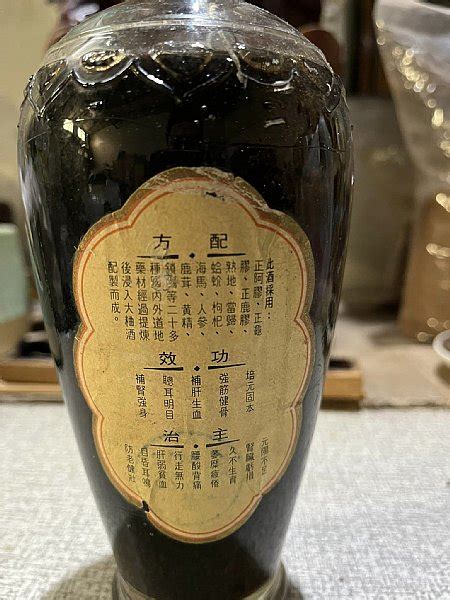 配方
此酒採用：
正阿膠、正龜
膠、正鹿膠、
熟地、當歸、
蛤蚧、枸杞、
海馬、人參、
鹿茸、黃精、
等二十多
種國內外道地
藥材經過提煉
後浸入大酒
配製而成。
功效
培元固本
強筋健骨
補肝生血
聰耳明目
補腎強身
主治
元陽不足
腎臟虧損
久不生育
萎靡疲倦
腰酸背痛
行走無力
肝弱貧血
目昏耳鳴
防老健壯